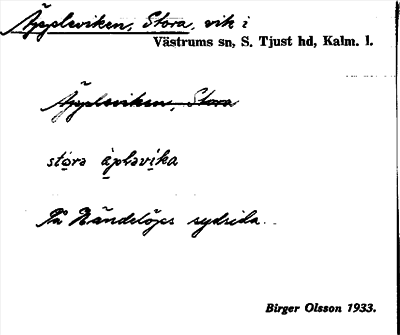 Äppleviken, Stora, vik i
Västrums sn, S. Tjust hd, Kalm. l.
Äppleviken, Stora
stora äpləvika
På Händelöps sydsida.
Birger Olsson 1933.